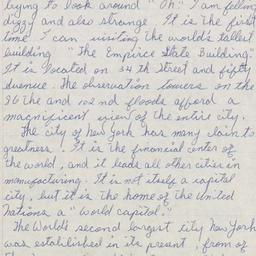 trying to look around "Oh!" I am feeling
dizzy and also strange. It is the first
time I can visiting the world's tallest
building "The Empirce State Building".
It is located on 34 th Street and fifty
Avenue. The observation towers on the
86 the and 102 nd floods afford a
magnificent view of the entire city.
The city of New York has many claim to
greatness. It is the financial center of
the world, and it leads all other cities in
manufacturing. It is not itself a capital
city, but it is the home of the United
Nations a "World capitol."
The World's second largest city New York
was established in its present, from of